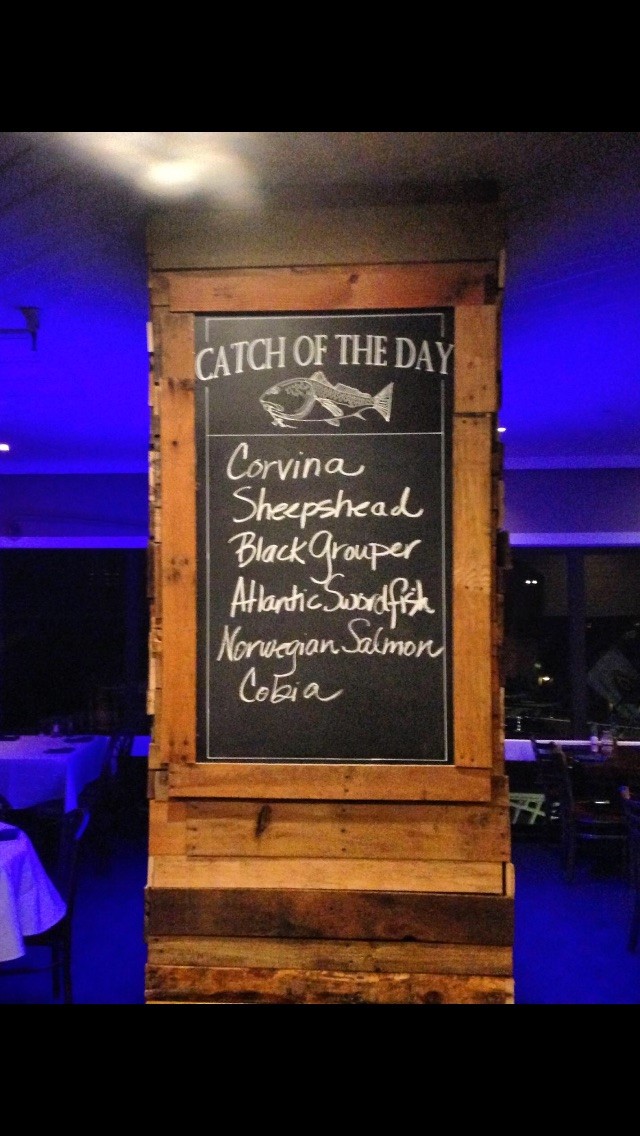 CATCH OF THE DAY
Corvina
Sheepshead
Black Grouper
Atlantic Swordfish
Norwegian Salmon
Cobia